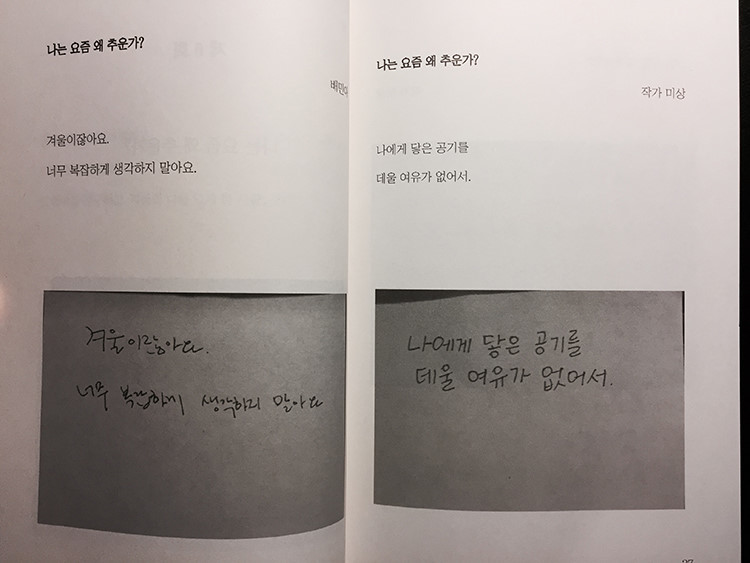 나는 요즘 왜 추운가?
겨울이잖아요.
너무 복잡하게 생각하지 말아요.
겨울이잖아요.
너무 복잡하게 생각하지 말아요
나는 요즘 왜 추운가?
작가 미상
나에게 닿은 공기를
데울 여유가 없어서.
나에게 닿은 공기를
데울 여유가 없어서.